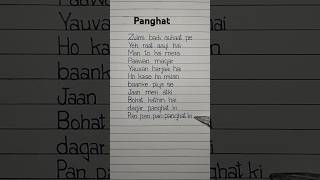 Panghat
Zulmi badi sukaat pe
Yeh raat aayi hai
Man to hai mera
Paawan magar
Yauvan harjai hai
Ho kaise ho milan
baanke piya se
Jaan meri atki
Bohat kathin hai
dagar panghat ki
Pan pan pan panghat ki